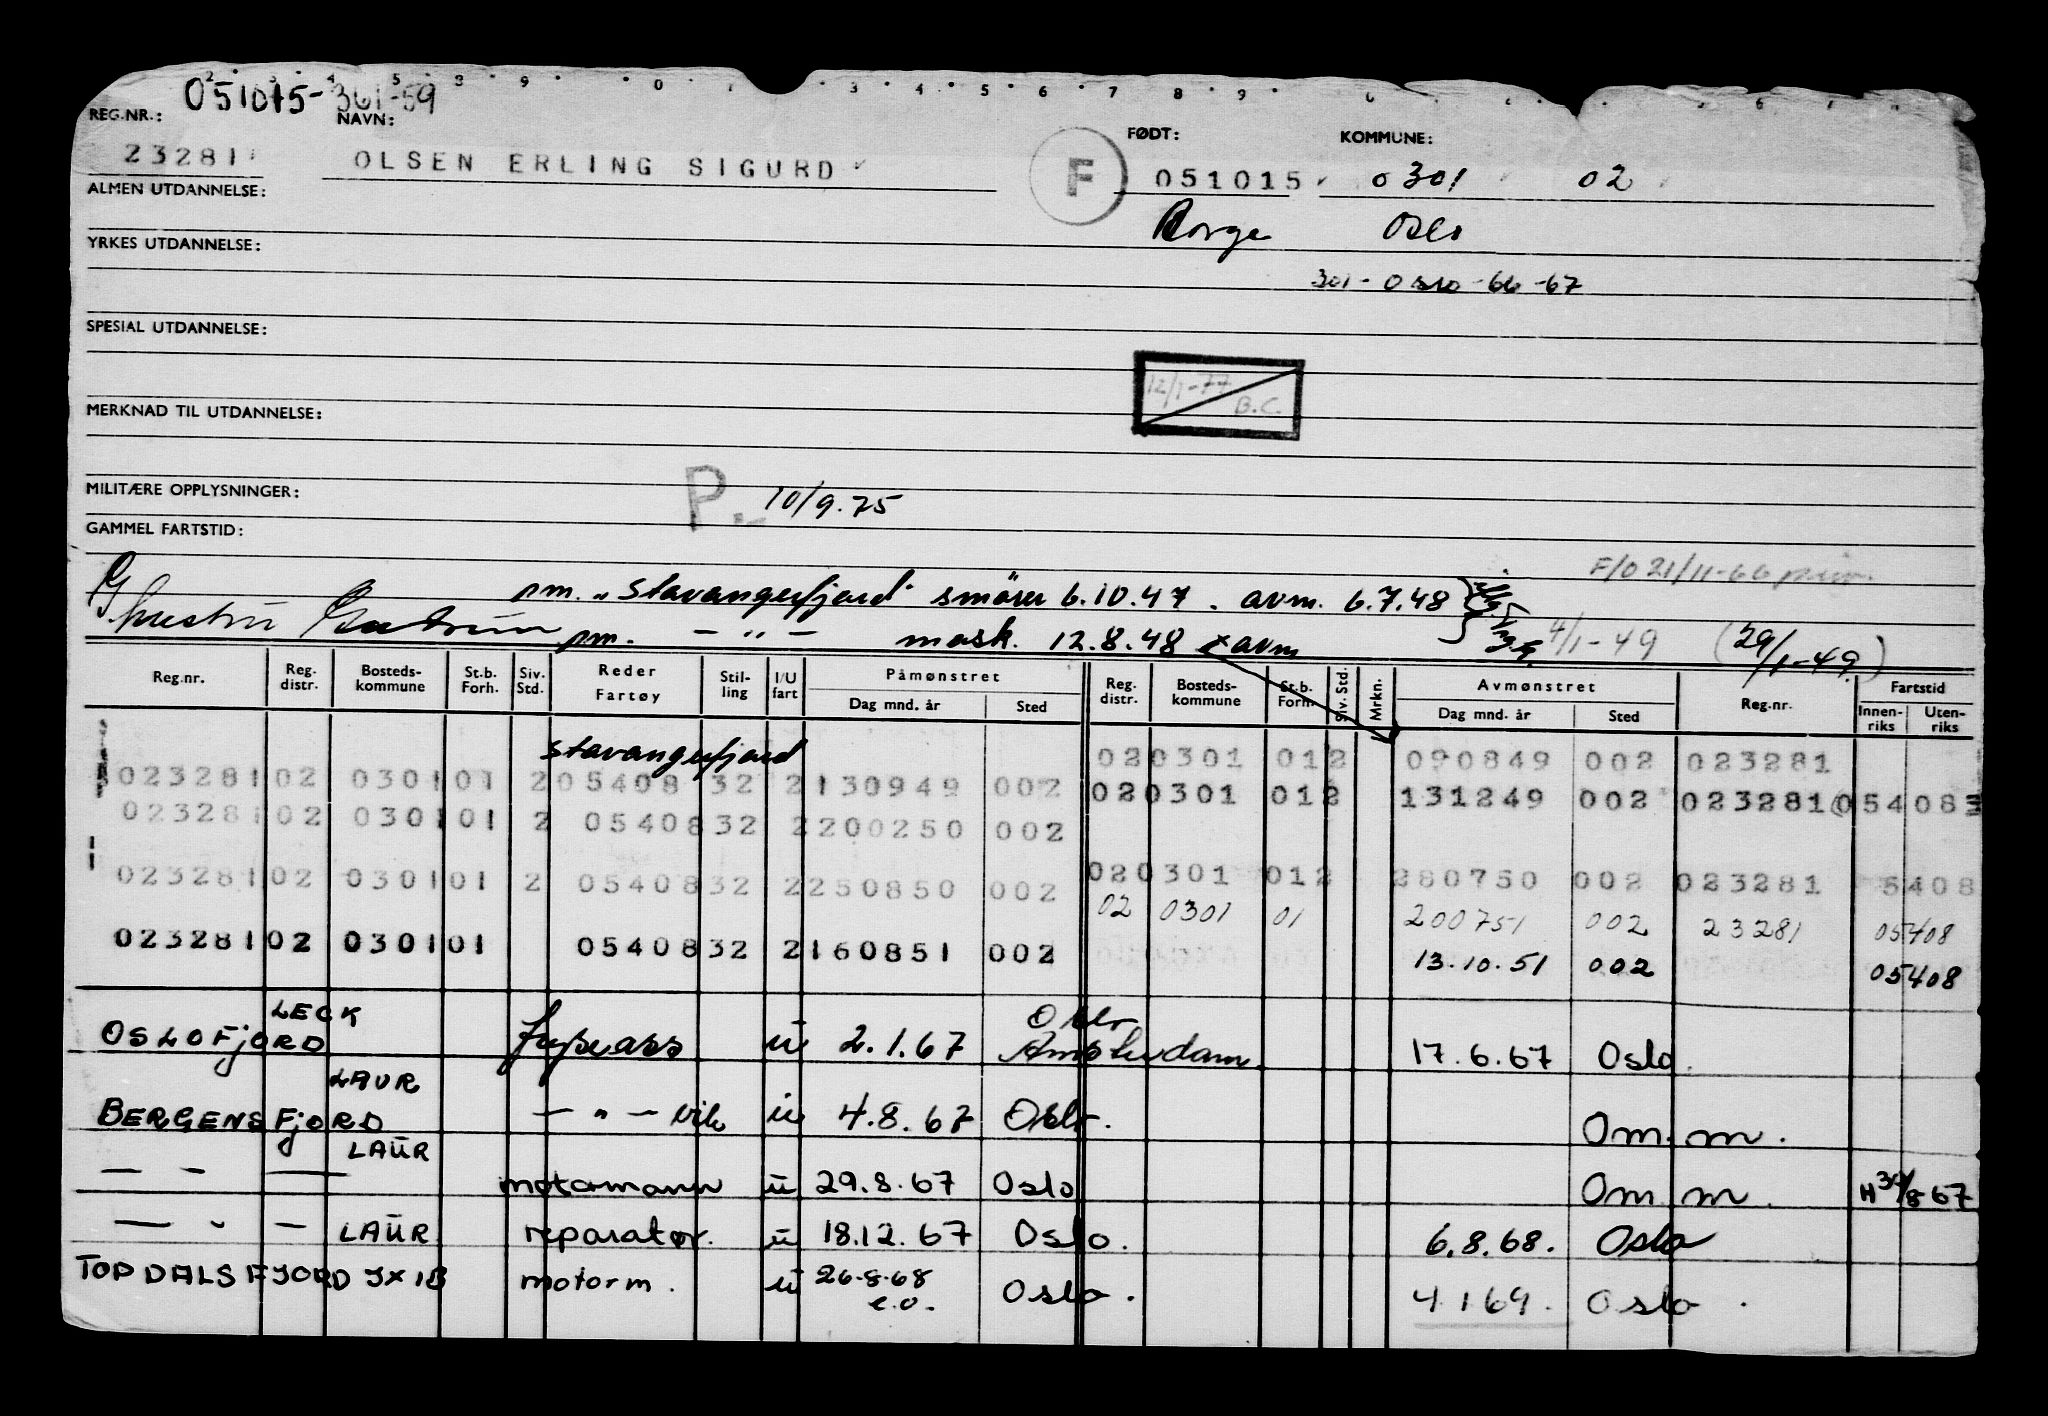 051015-361-59
REG.NR.: NAVN: FØDT: KOMMUNE:
23281 OLSEN ERLING SIGURD F 051015 0301 02
ALMEN UTDANNELSE:
Borge Oslo
YRKES UTDANNELSE:
301-Oslo-66-67
SPESIAL UTDANNELSE:
12/1-77 B.C.
MERKNAD TIL UTDANNELSE:
MILITÆRE OPPLYSNINGER:
P. 10/9.75
GAMMEL FARTSTID:
F/O 21/11-66
pm. "Stavangerfjord" smører 6.10.47. avm. 6.7.48
pm. — " — mask. 12.8.48 x avm 4/1-49 (29/1-49)
Reg.nr. Reg. distr. Bosteds-kommune St.b. Forh. Siv. Std. Reder Fartøy Stil-ling I/U fart Påmønstret Dag mnd. år Sted Reg. distr. Bosteds-kommune St.b. Forh. Siv. Std. Mrkn. Avmønstret Dag mnd. år Sted Reg.nr. Fartstid Innen-riks Uten-riks
Stavangerfjord 02 0301 01 2 090849 002 023281
023281 02 0301 01 2 05408 32 2 130949 002 02 0301 01 2 131249 002 023281 05408
023281 02 0301 01 2 05408 32 2 200250 002
023281 02 0301 01 2 05408 32 2 250850 002 02 0301 01 2 280750 002 023281 5408
02 0301 01 200751 002 23281 05408
023281 02 0301 01 05408 32 2 160851 002 13.10.51 002 05408
OSLOFJORD LECK ü 2.1.67 Oslo Amsterdam 17.6.67 Oslo.
BERGENSFJORD LAUR — " — ü 4.8.67 Oslo. Om. m.
— " — LAÜR motormann ü 29.8.67 Oslo Om. m. H 30/8 67
— " — LAÜR reparatør. ü 18.12.67 Oslo. 6.8.68. Oslo
TOPDALSFJORD JXIB motorm. ü 26.8.68 e.o. Oslo. 4.1.69. Oslo.